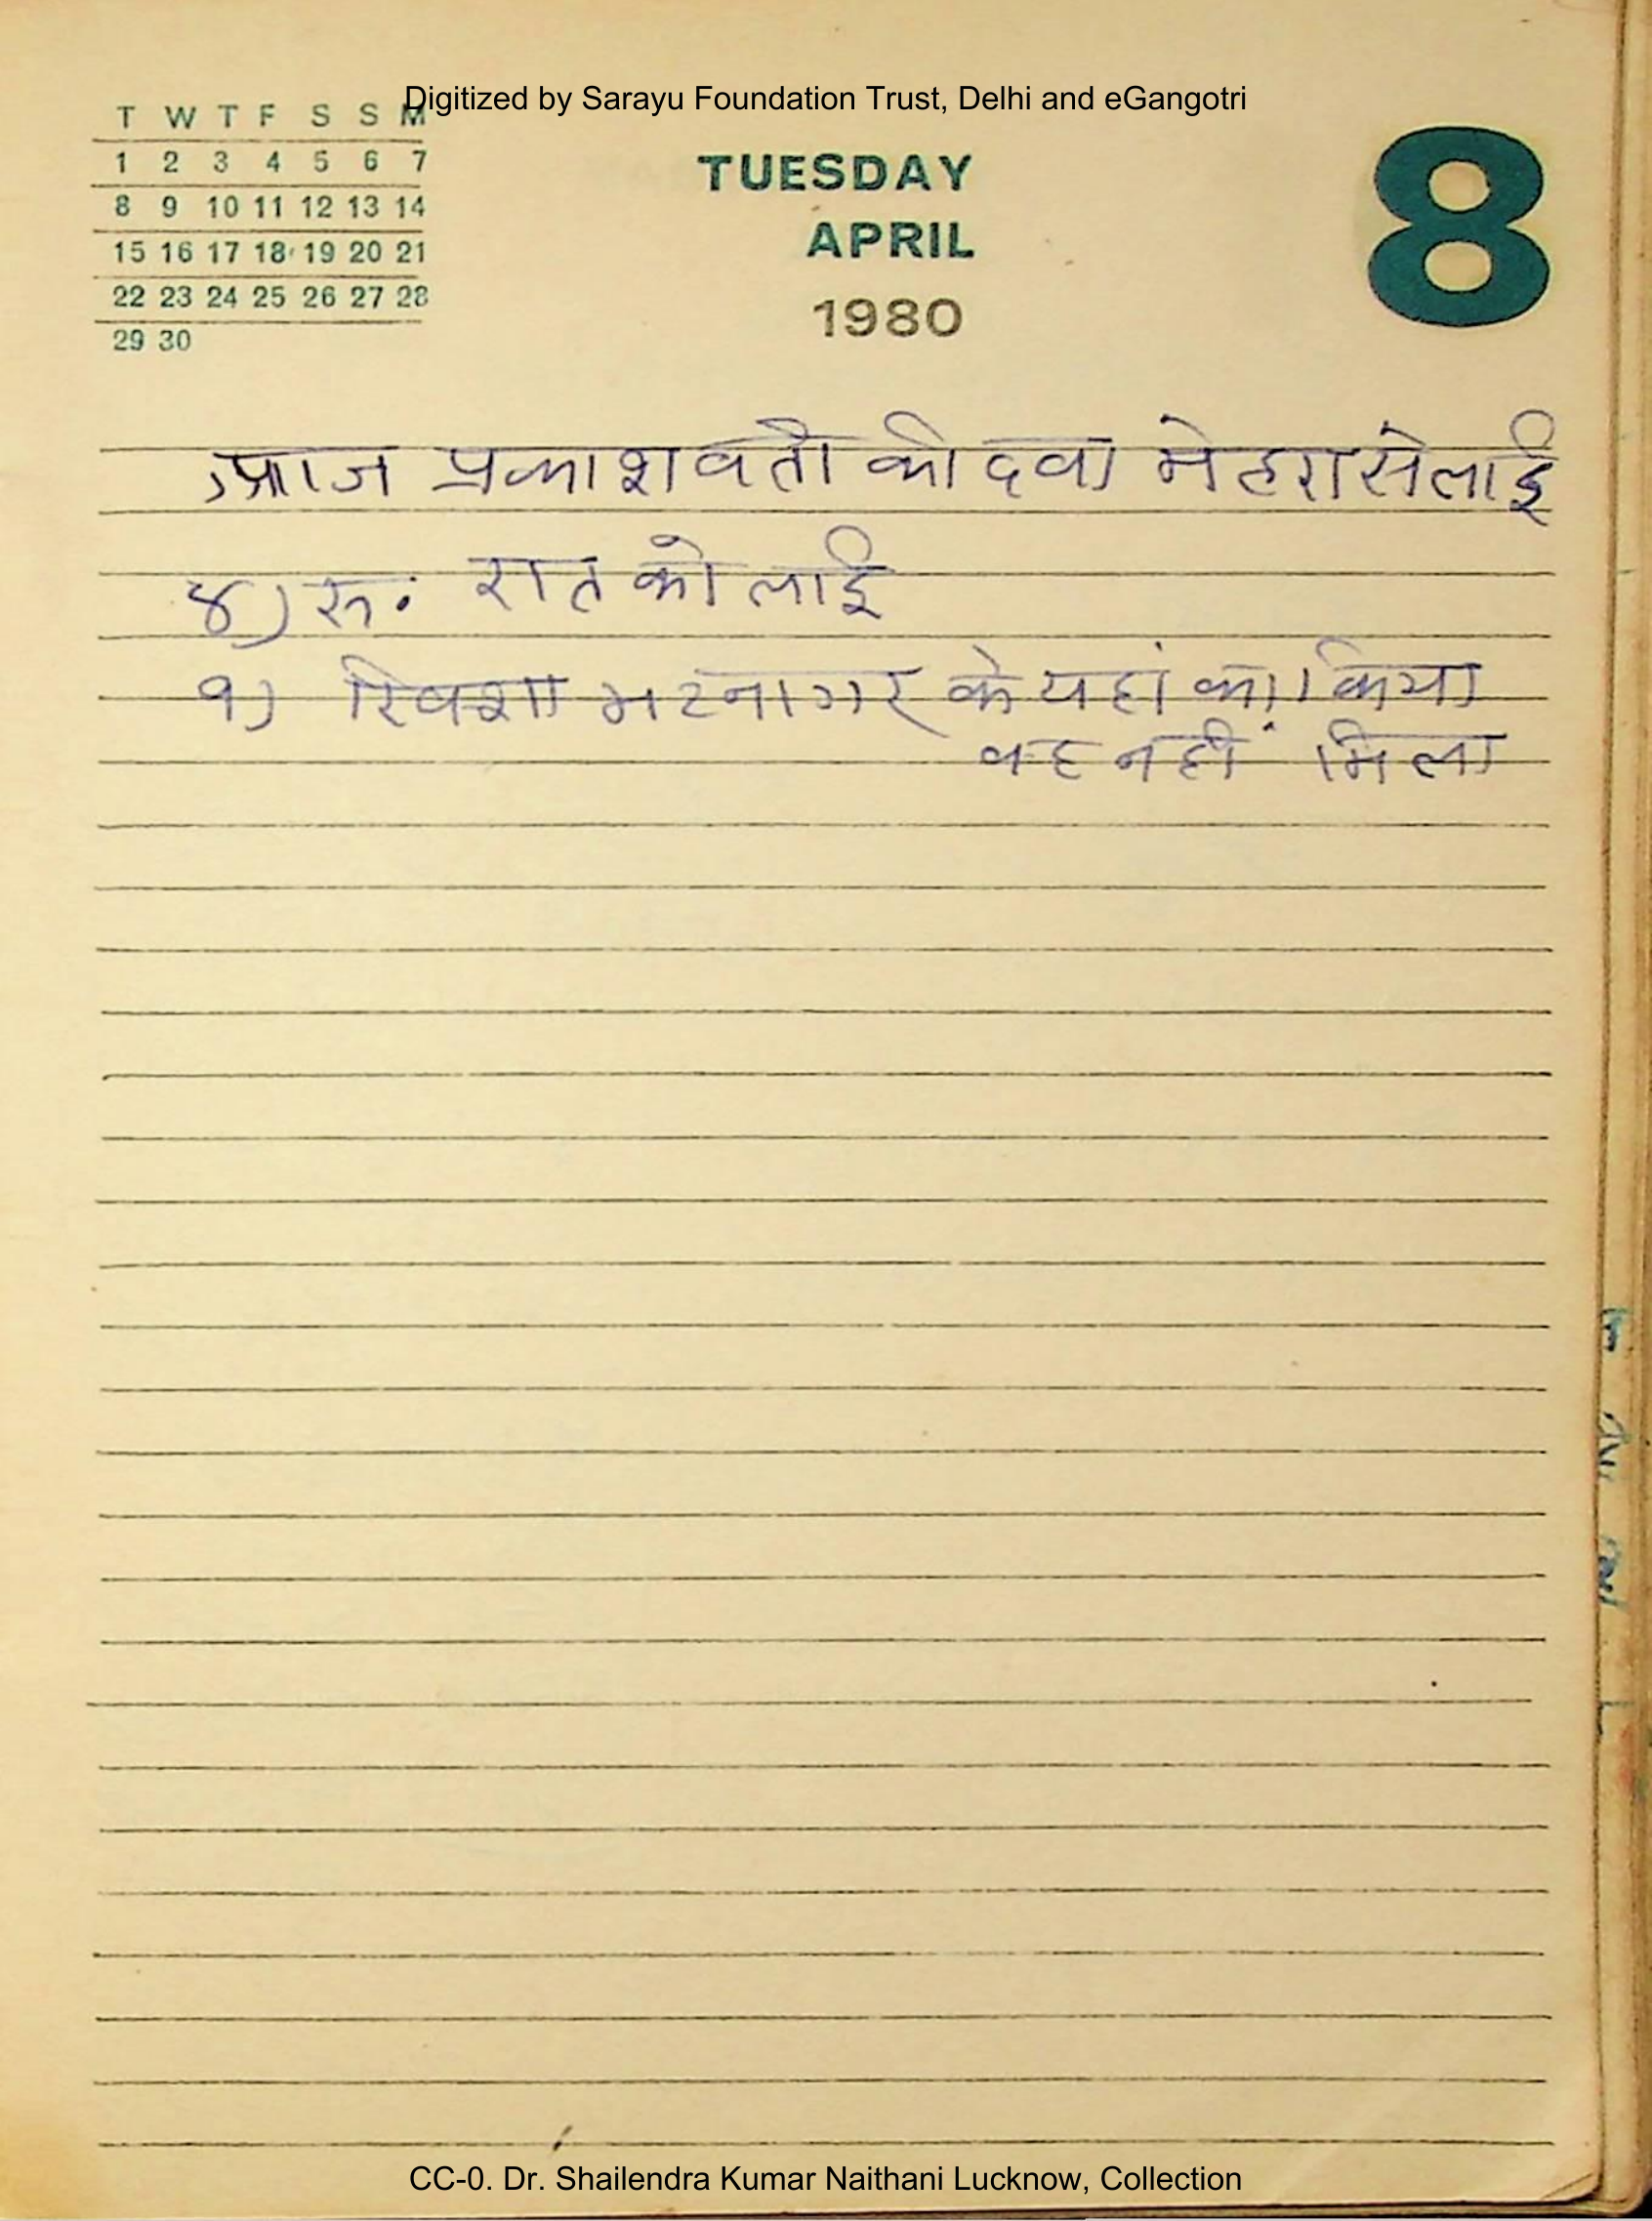 Digitized by Sarayu Foundation Trust, Delhi and eGangotri
T W T F S S M
1 2 3 4 5 6 7
8 9 10 11 12 13 14
15 16 17 18 19 20 21
22 23 24 25 26 27 28
29 30
TUESDAY
APRIL
1980
8
आज प्रकाशवती की दवा मेहरा से लाई
४) रु. रात को लाई
१) रिक्शा भटनागर के यहां का किया
वह नहीं मिला
CC-0. Dr. Shailendra Kumar Naithani Lucknow, Collection